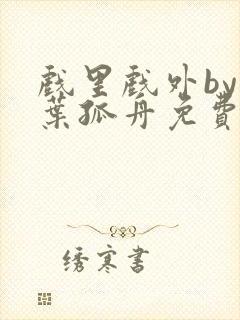 戲里戲外by
葉孤舟免費
绣寒書